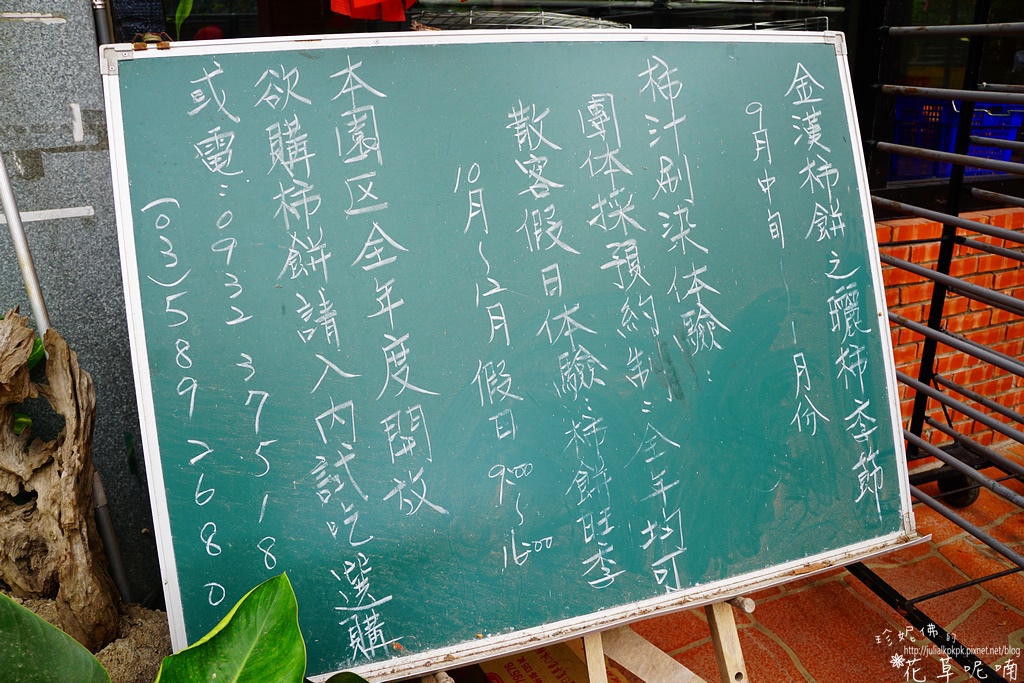 金漢柿餅之曬柿季節
9月中旬——1月份
柿汁刷染体驗:
團体採預約制:全年均可
散客假日体驗:柿餅旺季
10月~12月假日9:00~16:00
本園区全年度開放
欲購柿餅請入內試吃選購
或電:093237518
(03)5892680
珍妮佛的
http://julialkpkpk.pixnet.net/blog
花草呢喃